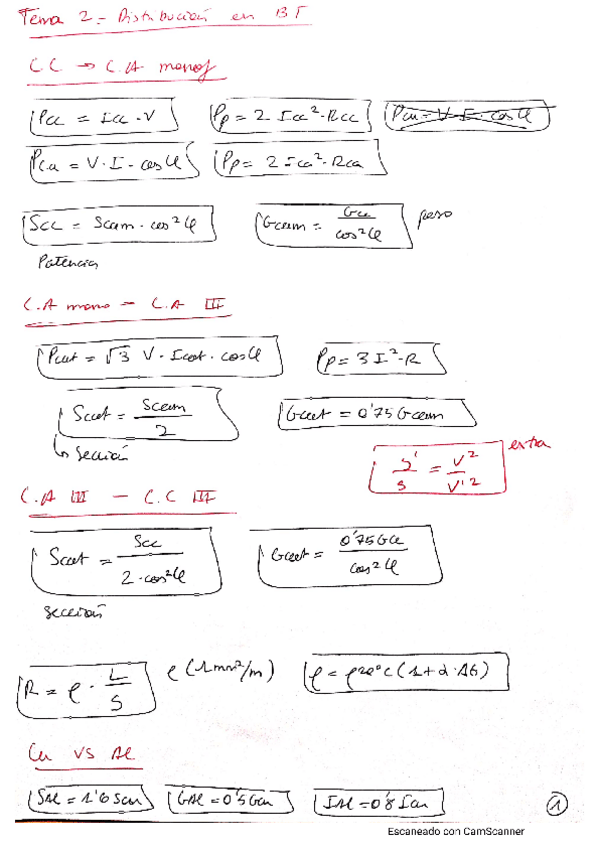 Tema 2.- Distribución en BT
CC → C.A monof
Pcc = Icc · V    Pp = 2 Icc² · Rcc    Pca = V · I · cosφ
Pca = V · I · cosφ    Pp = 2 Ica² · Rca
Scc = Scam · cos²φ    Gcam = Gcc / cos²φ    peso
Potencias
C.A mono – C.A III
Pcat = √3 V · Icat · cosφ    Pp = 3 I² · R
Scat = Scam / 2    Gcat = 0'75 Gcam
↳ Sección
extra
S' / S = V² / V'²
C.A III – C.C III
Scat = Scc / 2 · cos²φ    Gcat = 0'75 Gcc / cos²φ
sección
R = ρ · L / S    ρ (Ωmm²/m)    ρ = ρ20°C (1 + α · Δθ)
Cu VS Al
SAl = 1'6 Scu    GAl = 0'5 Gcu    IAl = 0'8 Icu    1
Escaneado con CamScanner